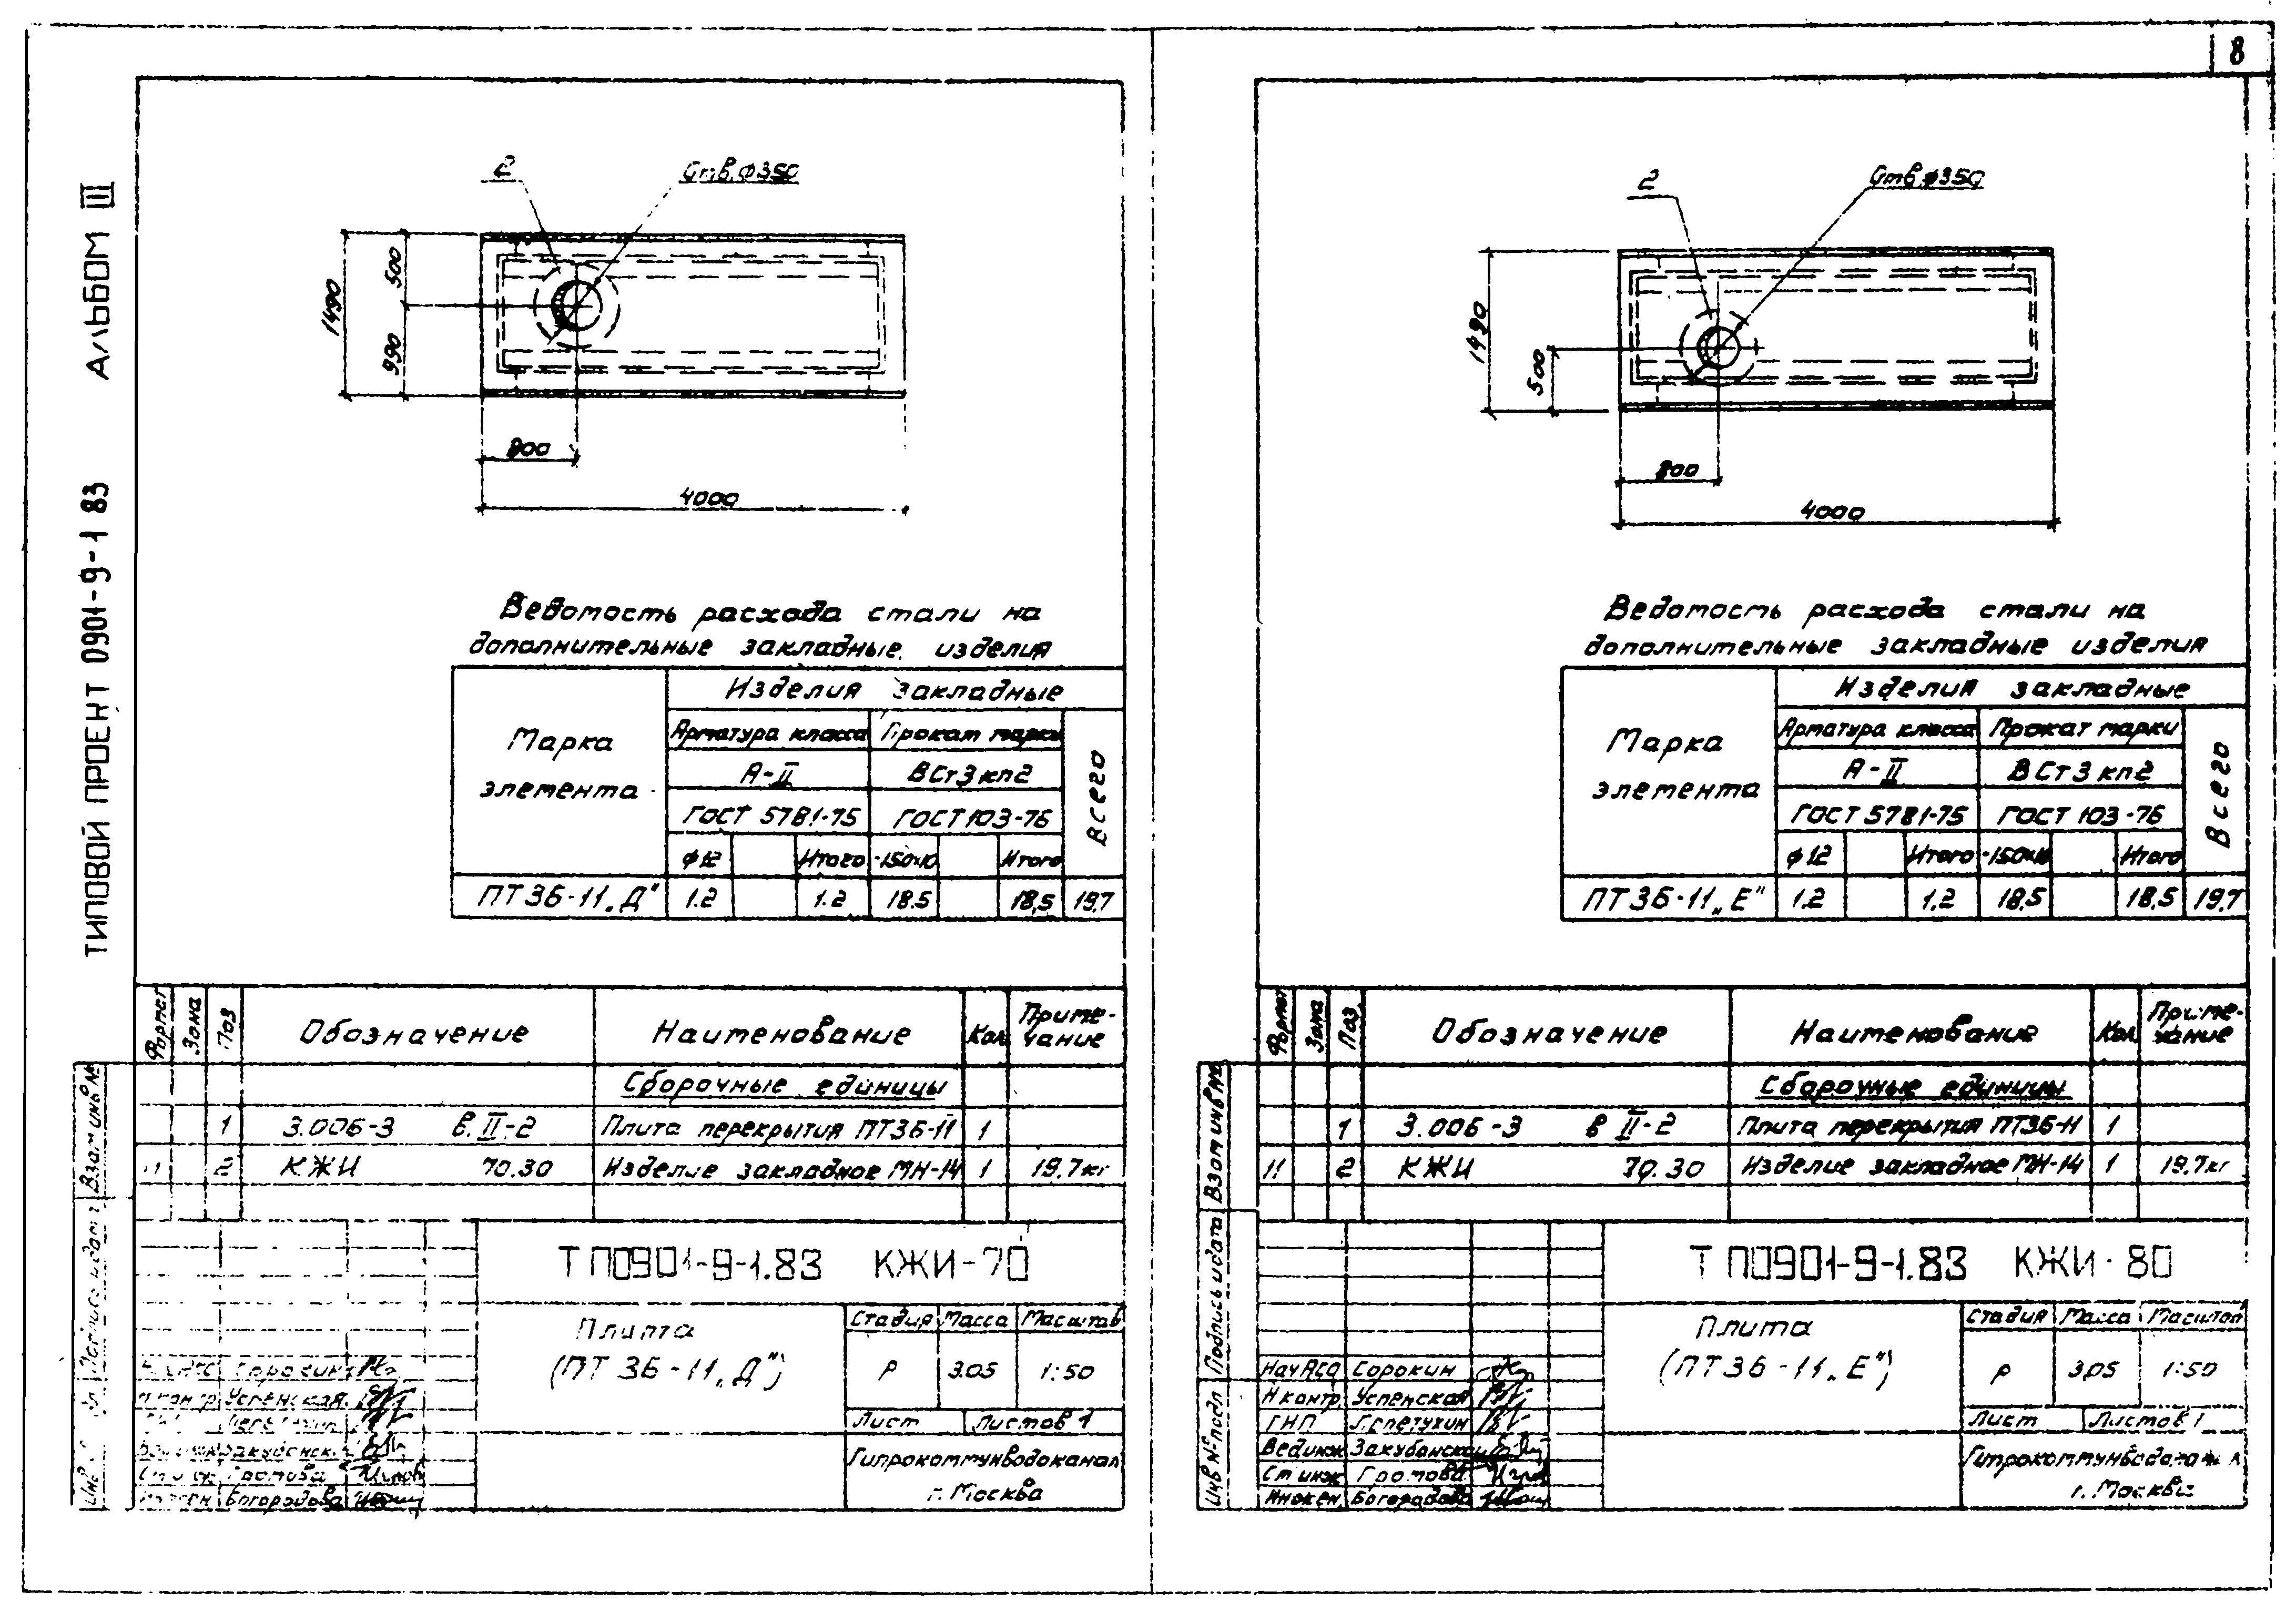 8
АЛЬБОМ III
ТИПОВОЙ ПРОЕКТ 0901-9-1 83
2
Отв.Ф350
1490
500
990
800
4000
Ведомость расхода стали на
дополнительные закладные изделия
Марка
элемента
Изделия закладные
Арматура класса
Прокат марки
Всего
А-II
ВСт3кп2
ГОСТ 5781-75
ГОСТ 103-76
ф12
Итого
-150х10
Итого
ПТ36-11„Д"
1.2
1.2
18.5
18,5
19,7
Формат
Зона
Поз
Обозначение
Наименование
Кол
Приме-
чание
Сборочные единицы
1 3.006-3 в.II-2 Плита перекрытия ПТ36-11 1
11 2 КЖИ 70.30 Изделие закладное МН-14 1 19,7кг
ТП0901-9-1.83 КЖИ-70
Плита
(ПТ36-11„Д")
Стадия Масса Масштаб
Р 3.05 1:50
Лист Листов 1
Гипрокоммунводоканал
г. Москва
Взам инв №
Н контр Успенская
Громова
Богородова
2
Отв.Ф350
1490
500
800
4000
Ведомость расхода стали на
дополнительные закладные изделия
Марка
элемента
Изделия закладные
Арматура класса
Прокат марки
Всего
А-II
ВСт3кп2
ГОСТ 5781-75
ГОСТ 103-76
ф12
Итого
-150х10
Итого
ПТ36-11„Е"
1.2
1,2
18,5
18,5
19,7
Формат
Зона
Поз
Обозначение
Наименование
Кол
Приме-
чание
Сборочные единицы
1 3.006-3 в II-2 Плита перекрытия ПТ36-11 1
11 2 КЖИ 70.30 Изделие закладное МН-14 1 19,7кг
ТП0901-9-1.83 КЖИ-80
Плита
(ПТ36-11„Е")
Стадия Масса Масштаб
Р 3,05 1:50
Лист Листов 1
Гипрокоммунводоканал
г. Москва
Взам инв №
Подпись и дата
Инв № подл
Нач АСО Сорокин
Н контр Успенская
ГИП
Вед инж
Ст инж Громова
Инжен Богородова